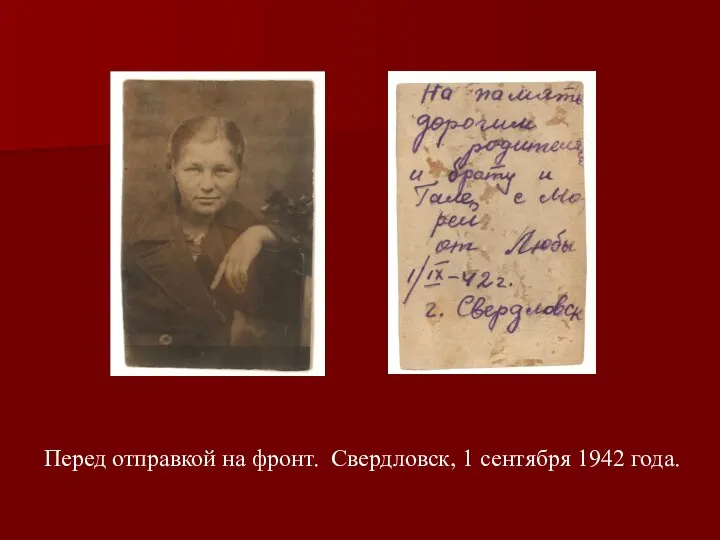 На память
дорогим
родителям
и брату и
Гале с Мо-
рей
от Любы
1/IX-42 г.
г. Свердловск
Перед отправкой на фронт. Свердловск, 1 сентября 1942 года.